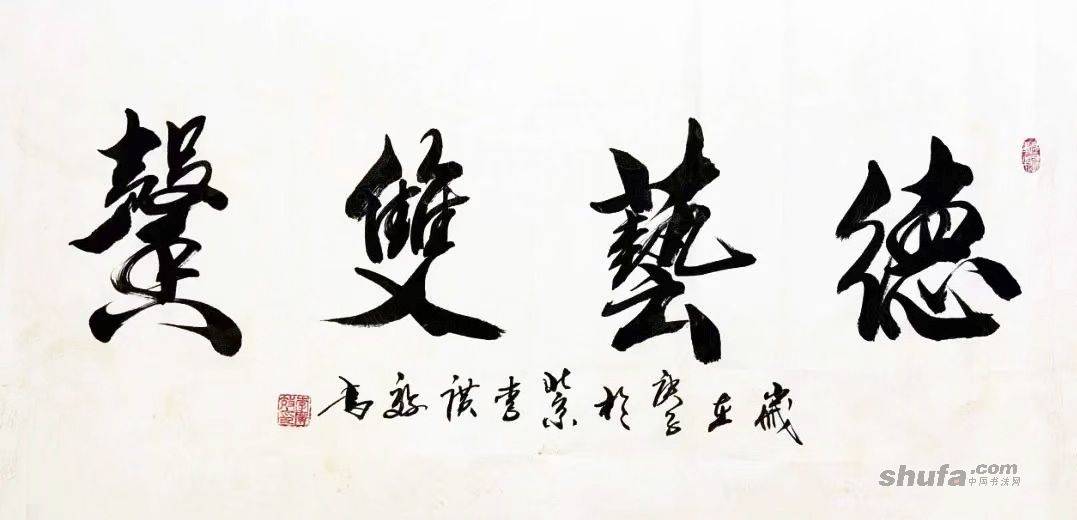 德藝雙馨
歲在庚子於北京李 書
shufa.com
中国书法网